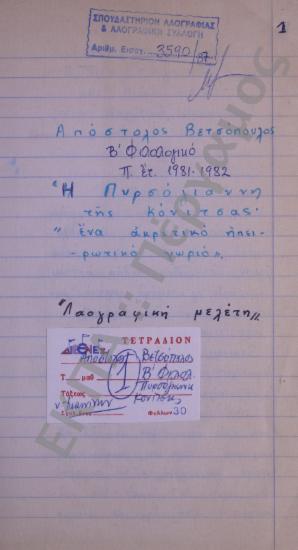 1
ΣΠΟΥΔΑΣΤΗΡΙΟΝ ΛΑΟΓΡΑΦΙΑΣ
& ΛΑΟΓΡΑΦΙΚΗ ΣΥΛΛΟΓΗ
Αριθμ. Εισαγ. 3590/87
Απόστολος Βετσόπουλος
Β' Φιλολογικό
Π. έτ. 1981-1982
"Η Πυρσόγιαννη
της Κόνιτσας.
"ένα ακριτικό ηπει-
ρωτικό χωριό».
"Λαογραφική μελέτη„
ΤΕΤΡΑΔΙΟΝ
ΔΙΕΘΝΕΣ
Απόστολος Βετσόπουλος
Τ μαθ 1 Β' Φιλολ.
Πυρσόγιαννη
Τάξεως Κονίτσης
Φύλλων 30
ΕΚΠΑ :: Πέργαμος